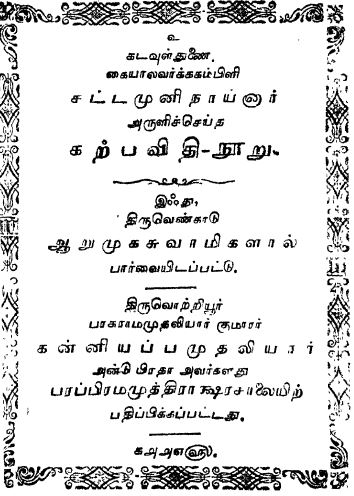 உ
கடவுள்துணை.
கையாலவர்க்ககம்பிளி
சட்டமுனிநாய்னார்
அருளிச்செய்த
கற்பவிதி-நூறு.
இஃது,
திருவெண்காடு
ஆறுமுகசுவாமிகளால்
பார்வையிடப்பட்டு.
திருவொற்றியூர்
பாகாரமமுதலியார் குமாரர்
கன்னியப்பமுதலியார்
அண்டு பிரதா அவர்களது
பரப்பிரமமுத்திராக்ஷரசாலையிற்
பதிப்பிக்கப்பட்டது.